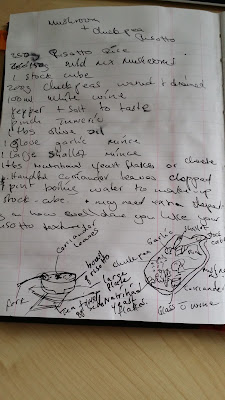 mushroom
+ chickpea
Risotto
250g Risotto Rice
mild mix mushrooms
1 stock cube
200g chickpeas washed + drained
100ml white wine
Pepper + salt to taste
pinch Tumeric
1 tbs olive oil
1 glove garlic mince
1 large shallot mince
1 tbs nutritional yeast flakes or cheese
handful coriander leaves chopped
1 pint boiling water to make up
stock cube. + may need extra depends
on how well done you like your
risotto texture
coriander
leaves
bowl
risotto
large
plate
fork
nutritional
yeast
flakes
chickpea
garlic
shallot
rice
coriander
Glass of wine